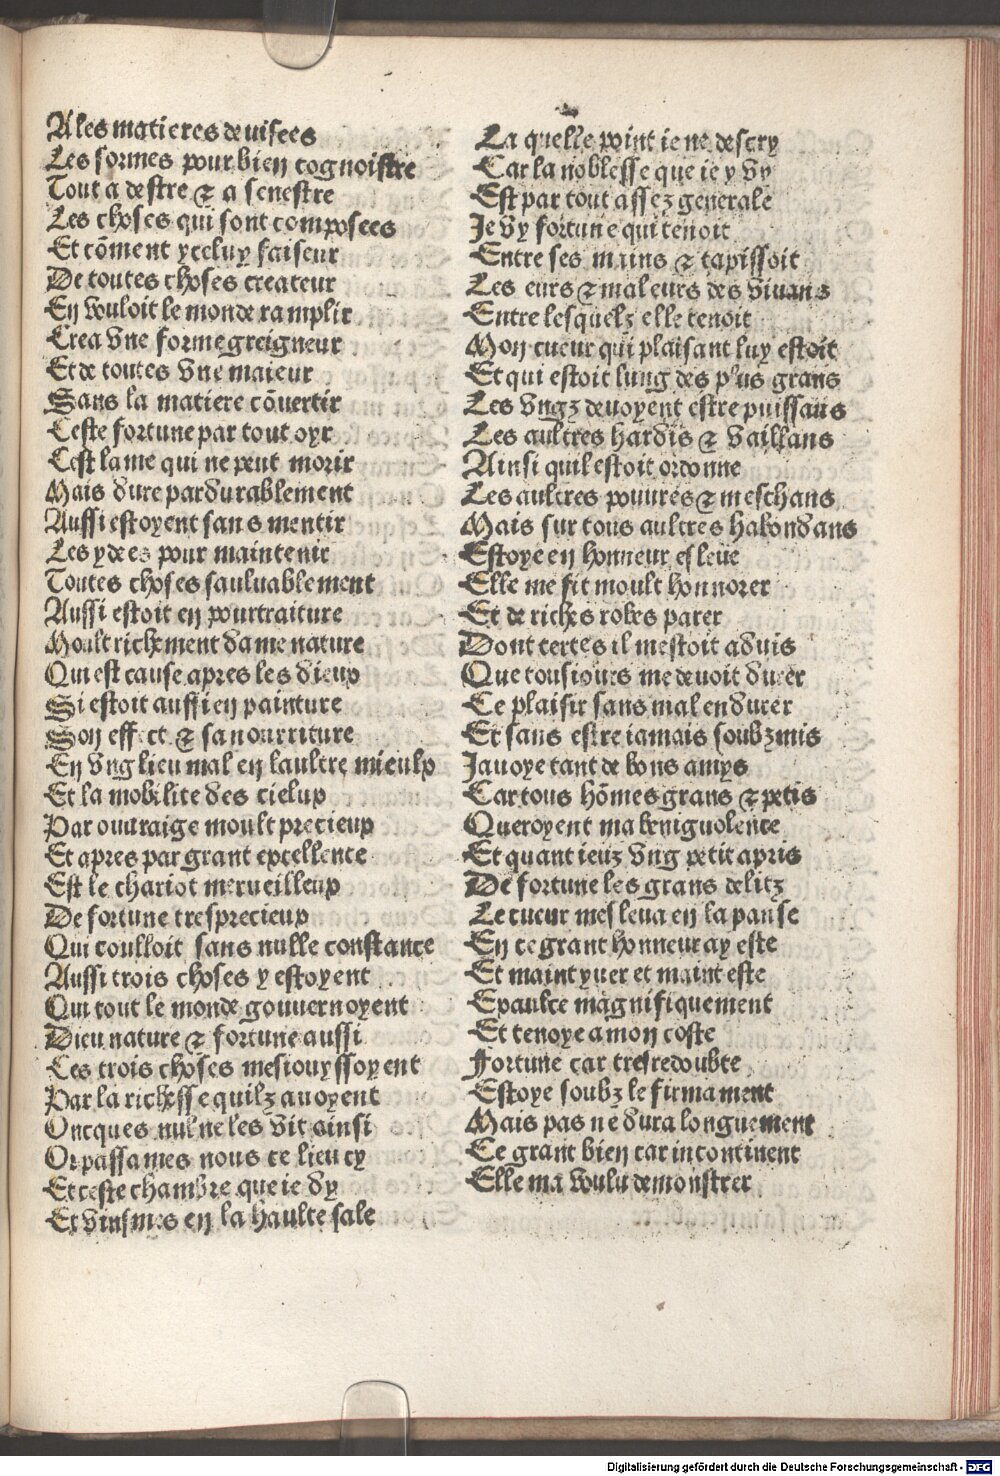 A les matieres deuisees
Les formes pour bien cognoistre
Tout a destre & a senestre
Les choses qui sont composees
Et cõment yceluy faiseur
De toutes choses createur
En vouloit le monde ramplir
Crea vne forme greigneur
Et de toutes vne maieur
Sans la matiere cõuertir
Ceste fortune par tout oyr
Cest lame qui ne peut morir
Mais dure pardurablement
Aussi estoyent sans mentir
Les ydees pour maintenir
Toutes choses sauluablement
Aussi estoit en pourtraiture
Moult richement dame nature
Qui est cause apres les dieux
Si estoit aussi en painture
Son effect & sa nourriture
En vng lieu mal en laultre mieulx
Et la mobilite des cielux
Par ouuraige moult precieux
Et apres par grant excellence
Est le chariot merueilleux
De fortune tresprecieux
Qui coulloit sans nulle constance
Aussi trois choses y estoyent
Qui tout le monde gouuernoyent
Dieu nature & fortune aussi
Les trois choses mesiouyssoyent
Par la richesse quilz auoyent
Oncques nul ne les vit ainsi
Or passames nous ce lieu cy
Et ceste chambre que ie dy
Et vinsmes en la haulte sale
La quelle point ie ne descry
Car la noblesse que ie y vy
Est par tout assez generale
Je vy fortune qui tenoit
Entre ses mains & tapissoit
Les eurs & maleurs des viuans
Entre lesquelz elle tenoit
Mon cueur qui plaisant luy estoit
Et qui estoit lung des plus grans
Les vngz deuoyent estre puissans
Les aultres hardis & vaillans
Ainsi quil estoit ordonne
Les aultres pouures & meschans
Mais sur tous aultres habondans
Estoye en honneur esleue
Elle me fit moult honnorer
Et de riches robes parer
Dont certes il mestoit aduis
Que tousiours me deuoit durer
Ce plaisir sans mal endurer
Et sans estre iamais soubzmis
Jauoye tant de bons amys
Car tous hõmes grans & petis
Queroyent ma beniguolence
Et quant ieuz vng petit apris
De fortune les grans delitz
Le cueur mesleua en la panse
En ce grant honneur ay este
Et maint yuer et maint este
Exaulce magnifiquement
Et tenoye a mon coste
Fortune car tresredoubte
Estoye soubz le firmament
Mais pas nē dura longuement
Ce grant bien car incontinent
Elle ma voulu demonstrer
Digitalisierung gefördert durch die Deutsche Forschungsgemeinschaft - DFG